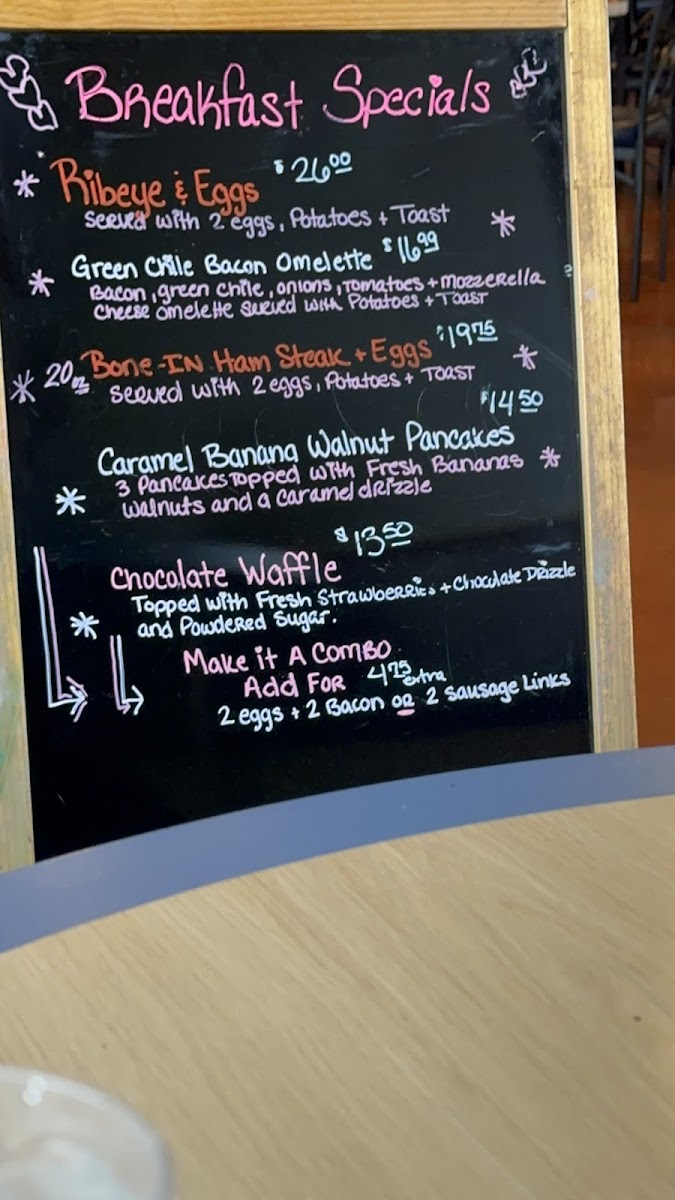 Breakfast Specials
* Ribeye & Eggs $26.00
served with 2 eggs, Potatoes + Toast *
* Green Chile Bacon Omelette $16.99
Bacon, green chile, onions, Tomatoes + mozzerella
cheese omelette served with Potatoes + Toast
* 20oz Bone-IN Ham Steak + Eggs $19.75
served with 2 eggs, Potatoes + Toast *
$14.50
Caramel Banana Walnut Pancakes
3 Pancakes Topped with Fresh Bananas *
* walnuts and a caramel drizzle
$13.50
Chocolate Waffle
Topped with Fresh Strawberries + Chocolate Drizzle
* and Powdered Sugar.
Make it A Combo
Add For 4.75 extra
2 eggs + 2 Bacon or 2 sausage Links